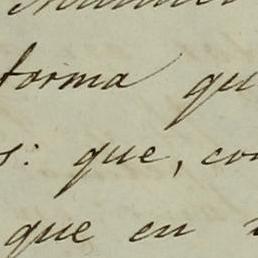 forma qu
s: que, con
que en